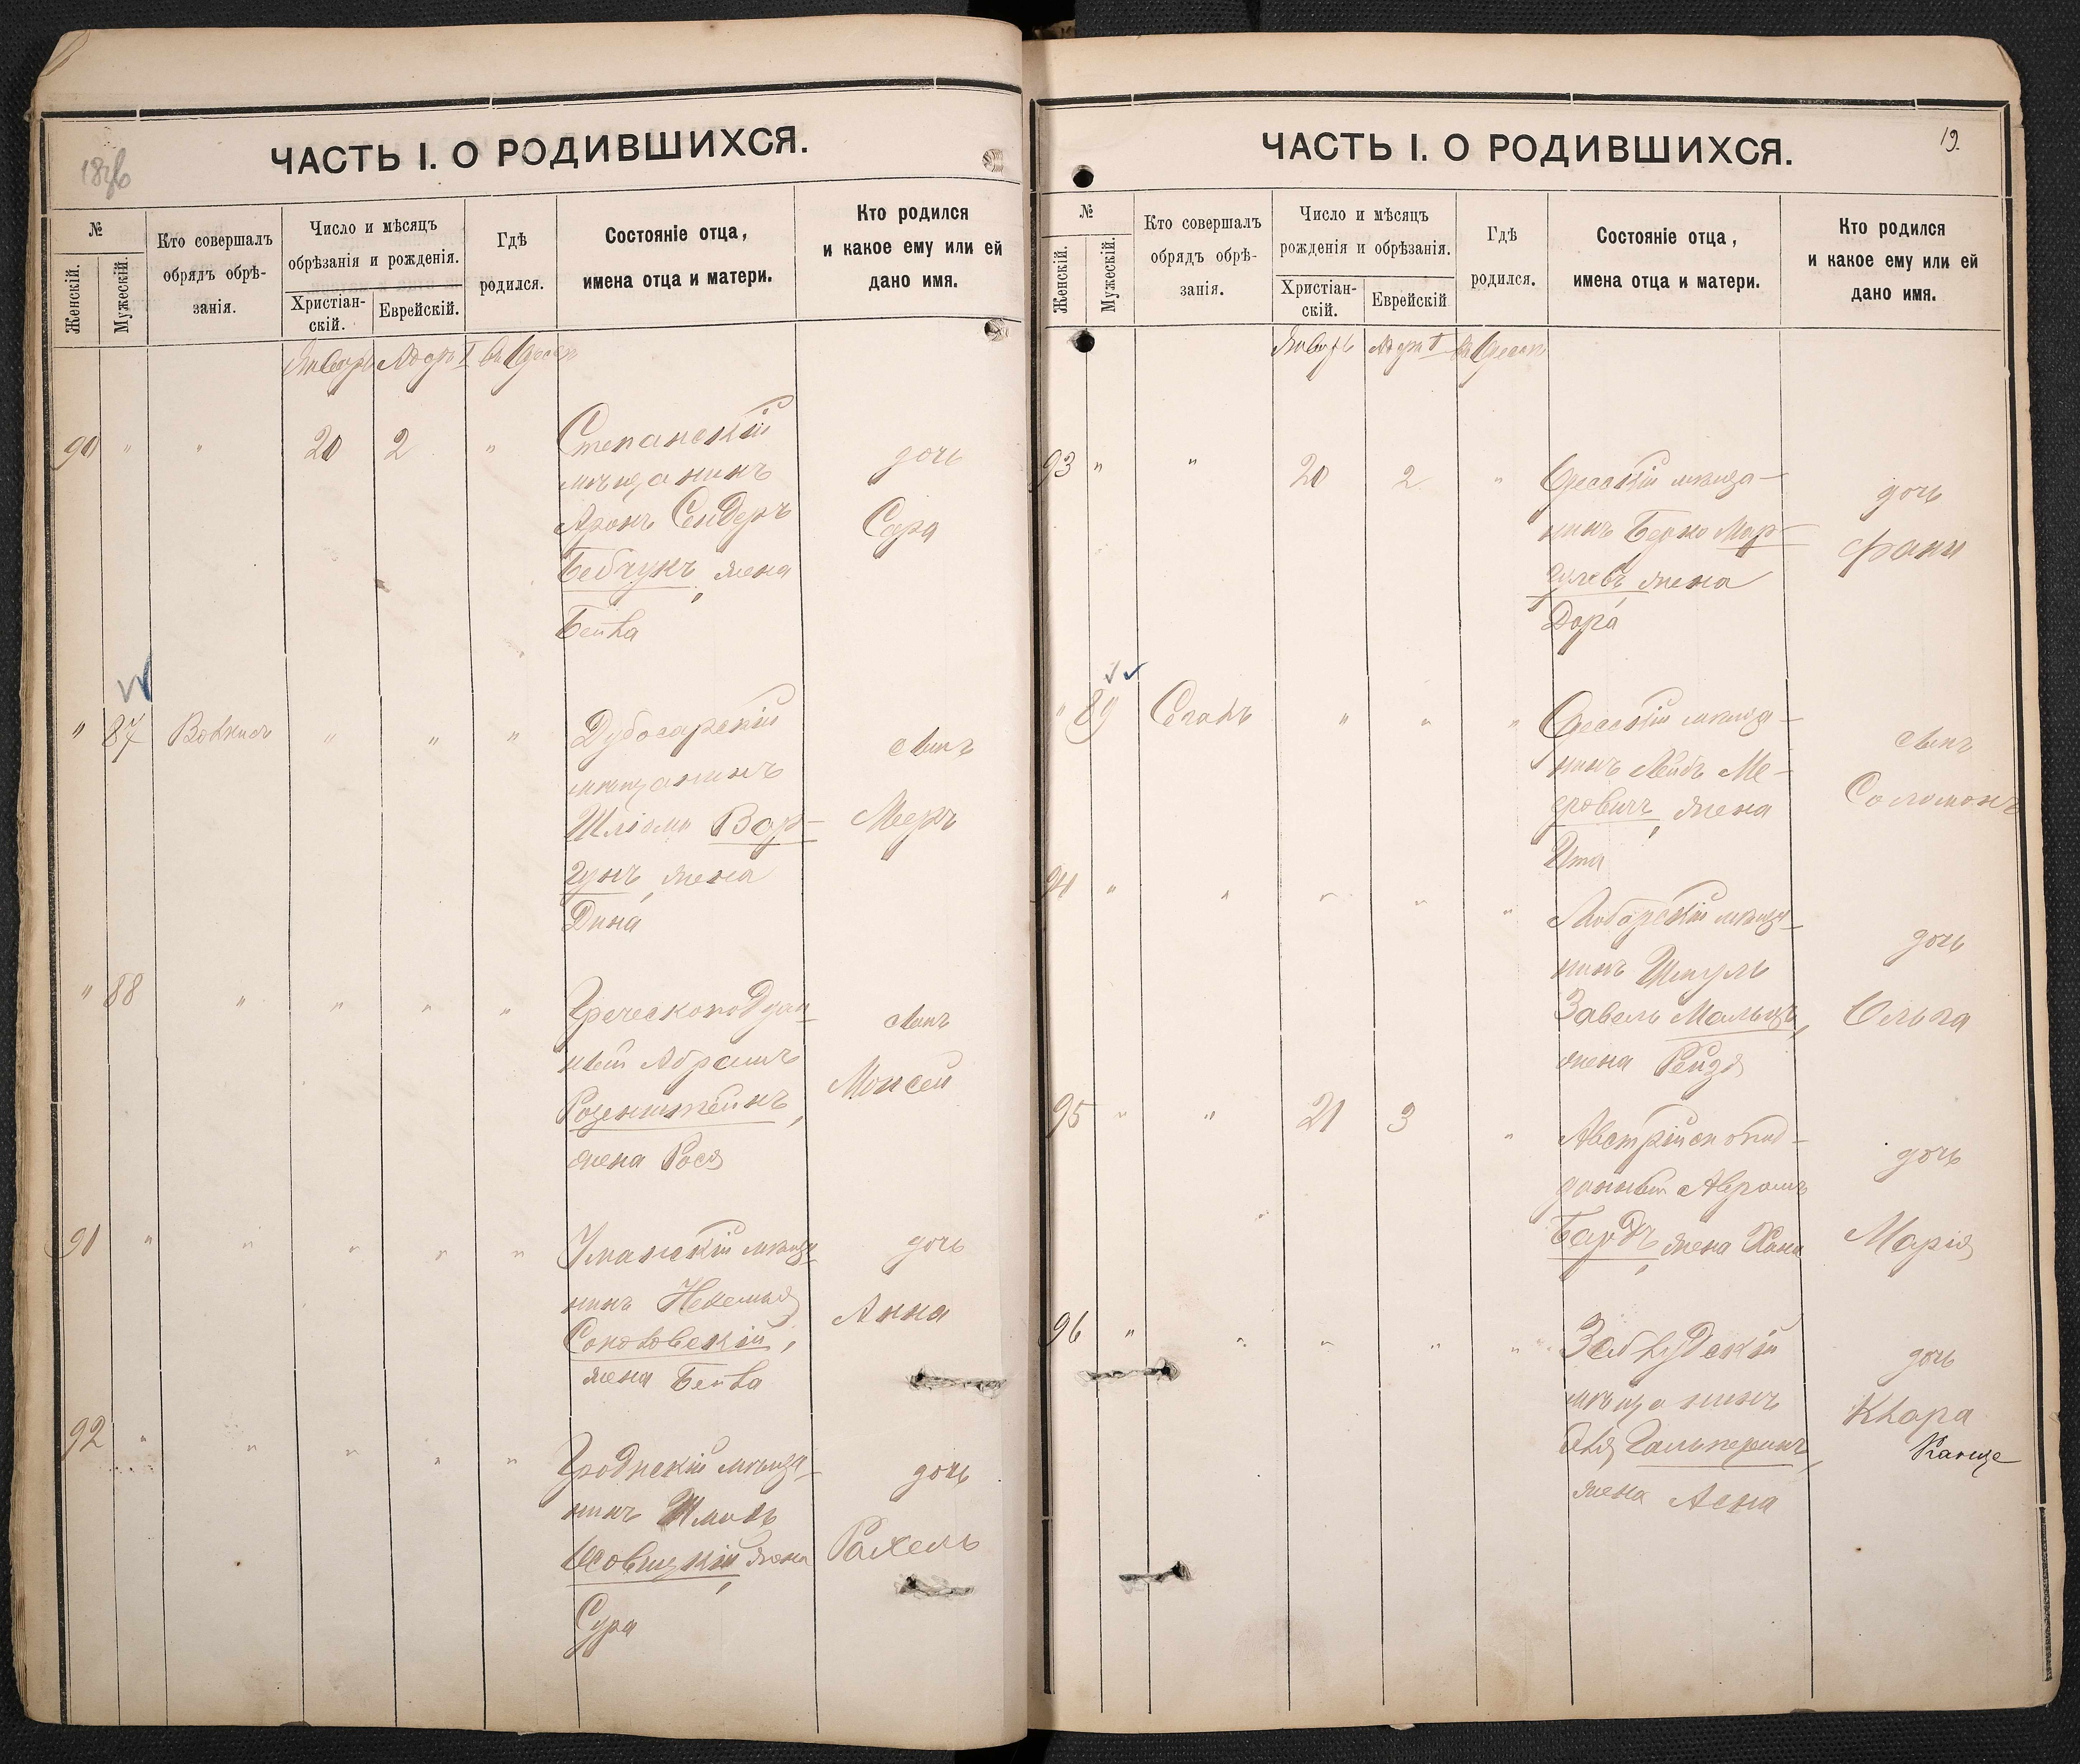 ЧАСТЬ I. О РОДИВШИХСЯ.
№
Женскій.
Мужескій.
Кто совершалъ
обрядъ обрѣ-
занія.
Число и мѣсяцъ
обрѣзанія и рожденія.
Христіан-
скій.
Еврейскій.
Гдѣ
родился.
Состояніе отца,
имена отца и матери.
Кто родился
и какое ему или ей
дано имя.
Январь Адаръ I въ Одессѣ
90 " " 20 2 "
Степанскій
мѣщанинъ
Аронъ Сендеръ
Бебчукъ, жена
Бейла
дочь
Сара
" 87 " " "
Дубосарскій
мѣщанинъ
Шліома Вар-
гунъ, жена
Дина
сынъ
Мееръ
" 88 " " " "
Греческоподдан-
ный Абрамъ
Розенштейнъ,
жена Рося
сынъ
Моисей
91 " " " " "
Уманскій мѣща-
нинъ Нехемья
Соколовскій,
жена Бейла
дочь
Анна
92 " " " " "
Гроднскій мѣща-
нинъ
жена
Сура
дочь
Рахель
ЧАСТЬ I. О РОДИВШИХСЯ.
19.
№
Женскій.
Мужескій.
Кто совершалъ
обрядъ обрѣ-
занія.
Число и мѣсяцъ
рожденія и обрѣзанія.
Христіан-
скій.
Еврейскій
Гдѣ
родился.
Состояніе отца,
имена отца и матери.
Кто родился
и какое ему или ей
дано имя.
Январь Адаръ I въ Одессѣ
93 " " 20 2 "
Одесскій мѣща-
нинъ Берко Мар-
гулевъ, жена
Дора
дочь
Фани
" 89 Сегалъ " " "
Одесскій мѣща-
нинъ Лейбъ Ме-
еровичъ, жена
Ита
сынъ
Соломонъ
94 " " " " "
Любарскій мѣща-
нинъ Шмуль
Завель Мальцъ,
жена Рейзя
дочь
Ольга
95 " " 21 3 "
Австрійскопод-
данный Авраамъ
Бардъ, жена Хана
дочь
Марія
96 " " " " "
Заблудскій
мѣщанинъ
Гальперинъ,
жена Асна
дочь
Клара